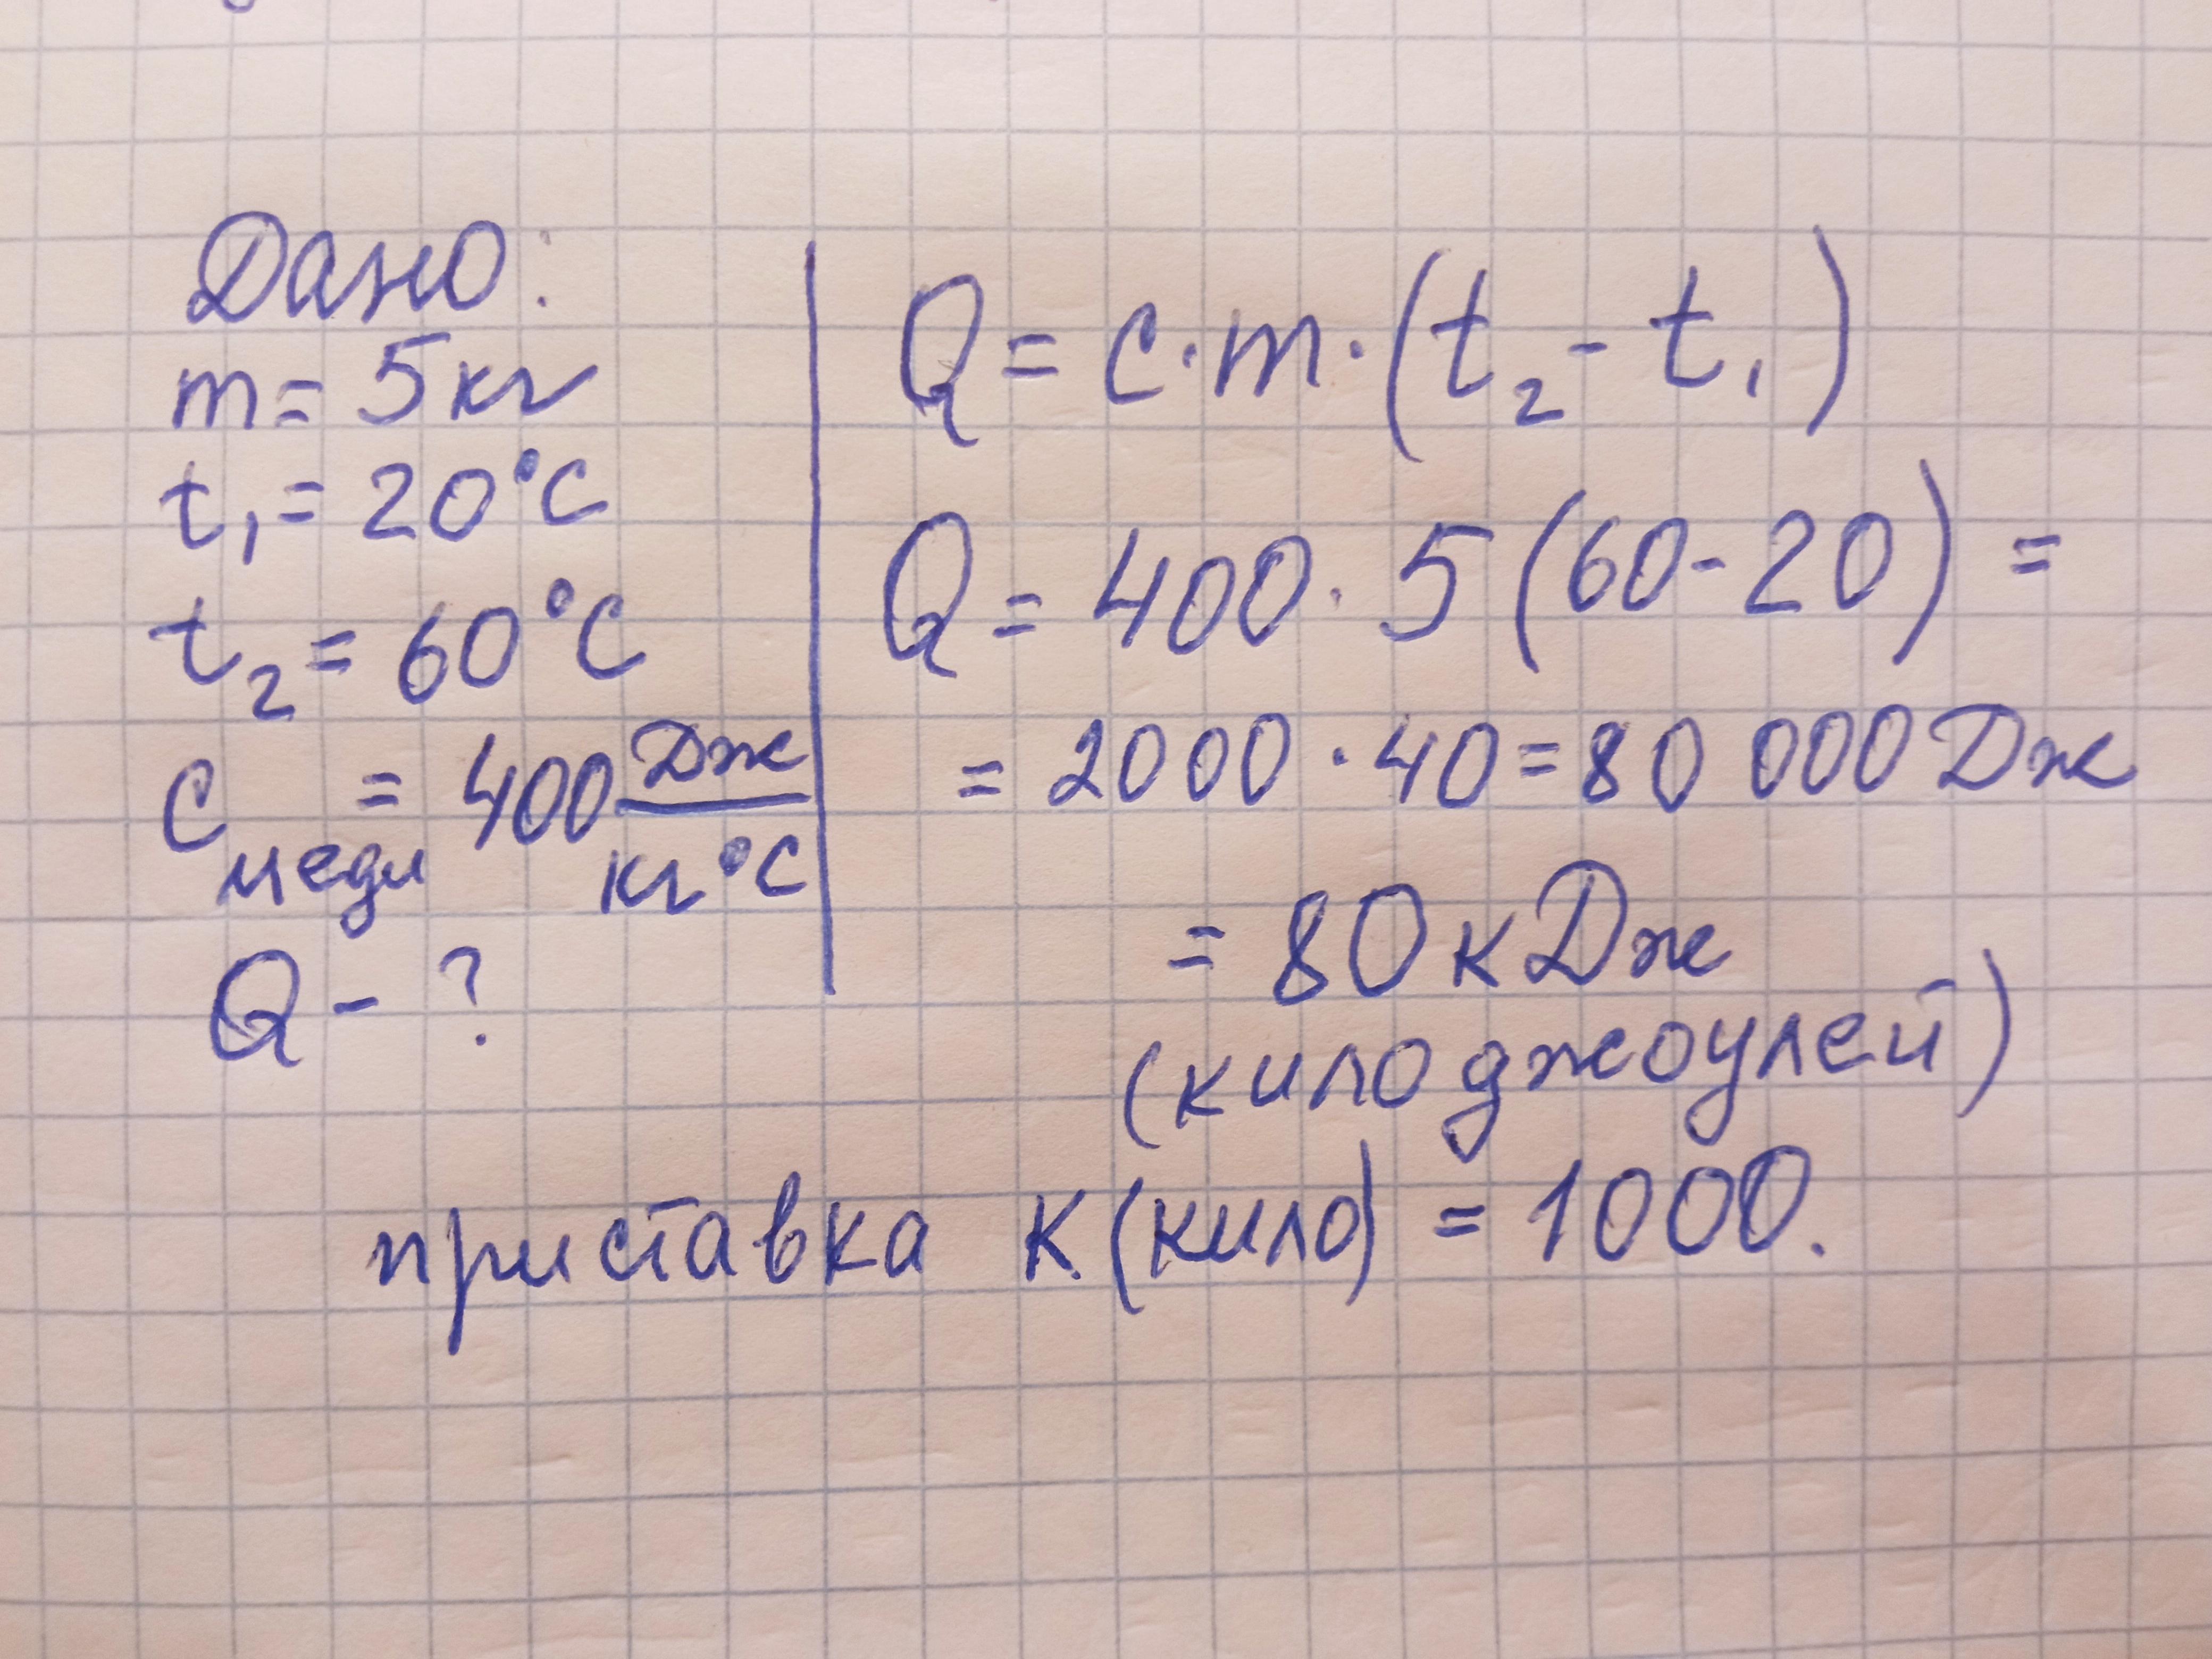 Дано:
m = 5 кг
t₁ = 20°C
t₂ = 60°C
C меди = 400 Дж/кг°C
Q - ?
Q = c · m · (t₂ - t₁)
Q = 400 · 5 (60 - 20) =
= 2000 · 40 = 80 000 Дж
= 80 кДж
(килоджоулей)
приставка к (кило) = 1000.